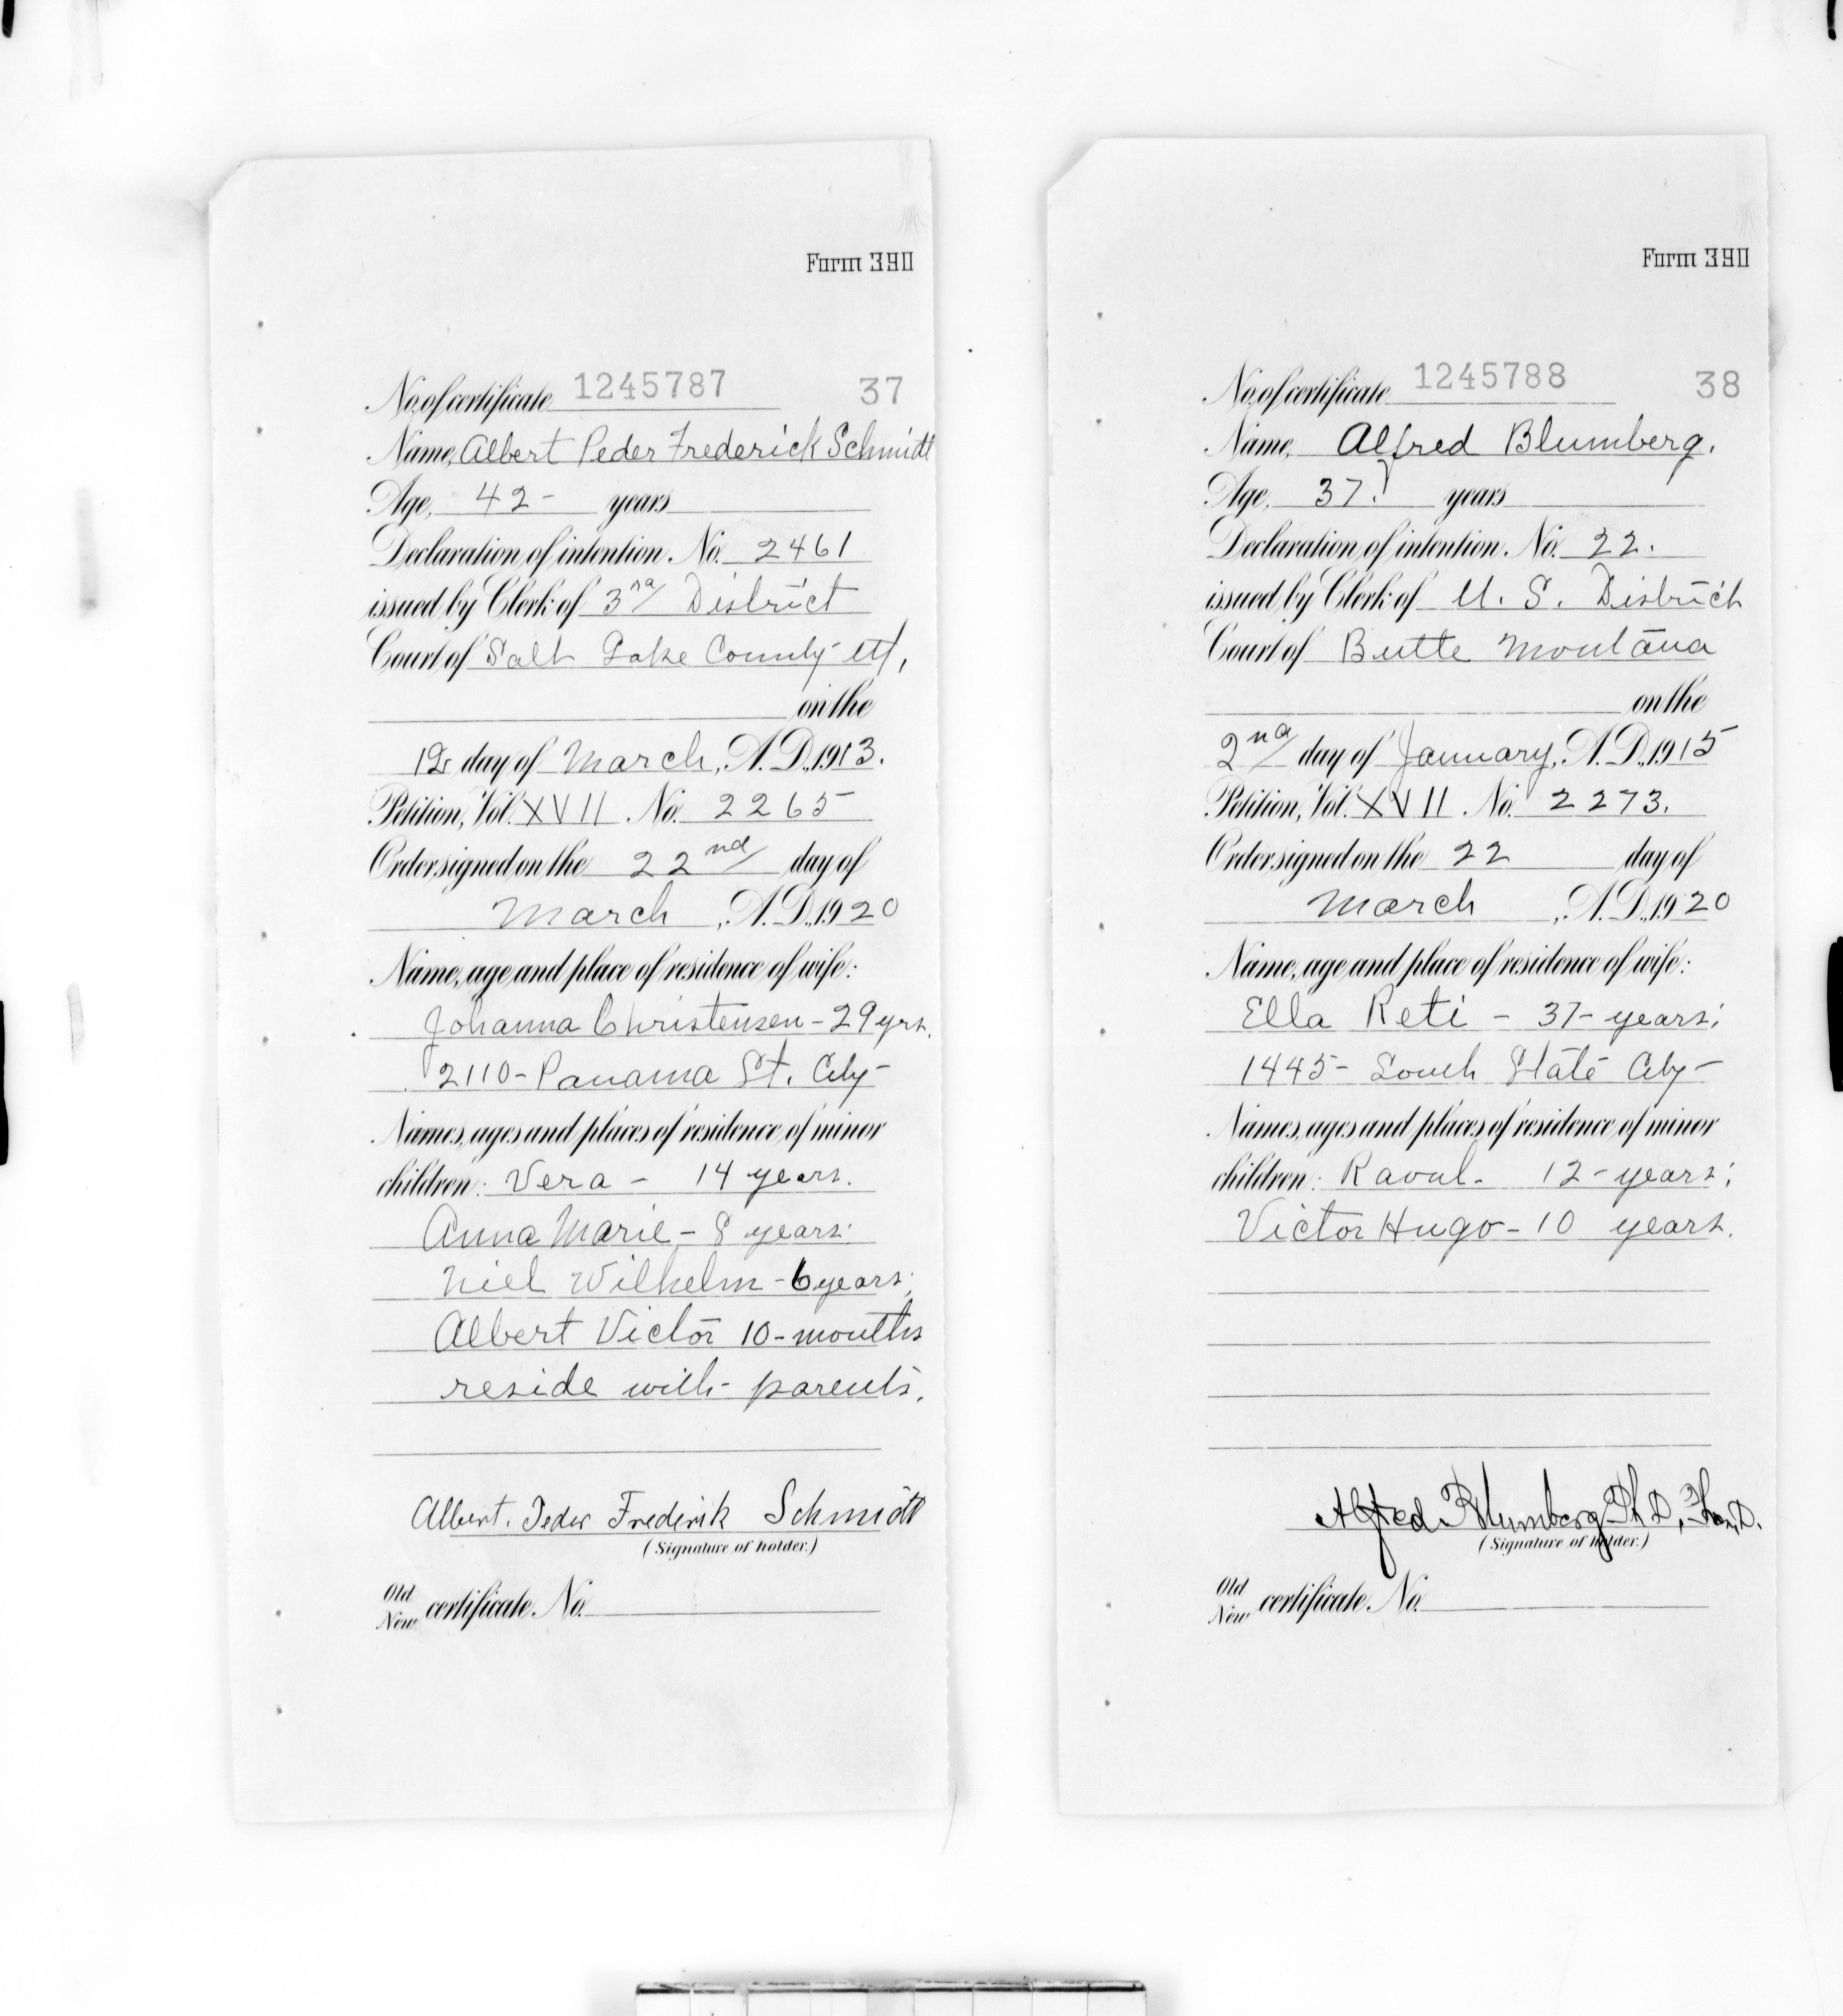 Form 390
No. of certificate 1245787 37
Name, Albert Peder Frederick Schmidt
Age, 42 - years
Declaration of intention, No. 2461
issued by Clerk of 3rd District
Court of Salt Lake County Ut,
on the
12 day of March, A.D., 1913.
Petition, Vol. XVII. No. 2265
Order signed on the 22nd day of
March, A.D., 1920
Name, age and place of residence of wife:
Johanna Christensen - 29 yrs.
2110 - Panama St. City -
Names, ages and places of residence of minor
children: Vera - 14 years.
Anna Marie - 8 years:
Niel Wilhelm - 6 years;
Albert Victor 10 - months
reside with - parents.
Albert. Peder Frederik Schmidt
(Signature of holder.)
Old
New certificate, No.
Form 390
No. of certificate 1245788 38
Name, Alfred Blumberg.
Age, 37. years
Declaration of intention, No. 22.
issued by Clerk of U. S. District
Court of Butte Montana
on the
2nd day of January, A.D., 1915
Petition, Vol. XVII. No. 2273.
Order signed on the 22 day of
March, A.D., 1920
Name, age and place of residence of wife:
Ella Reti - 37 - years;
1445 - South State City -
Names, ages and places of residence of minor
children: Raoul - 12 - years;
Victor Hugo - 10 years.
Alfred Blumberg Ph D,
(Signature of holder.)
Old
New certificate, No.